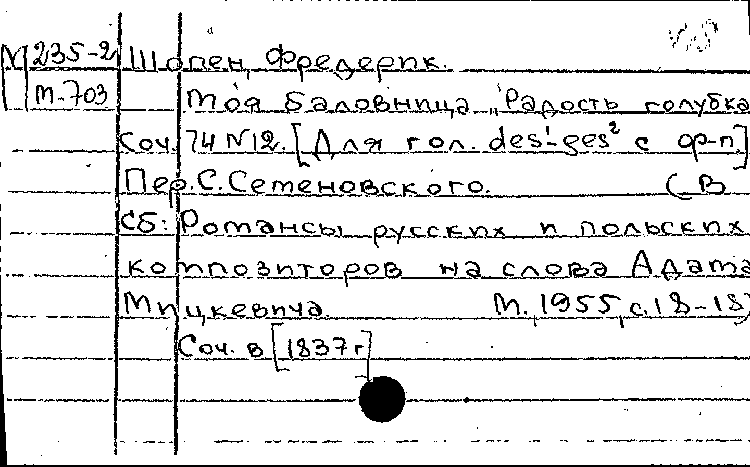 М 235-2 Шопен, Фредерик.
М-703 Моя баловница „Радость голубка
Соч. 74 N12. [Для гол. des¹-ges² с ф-п.]
Пер. С. Семеновского. (В
сб: Романсы русских и польских
композиторов на слова Адама
Мицкевича. М., 1955, с. 18-18)
Соч. в [1837 г]